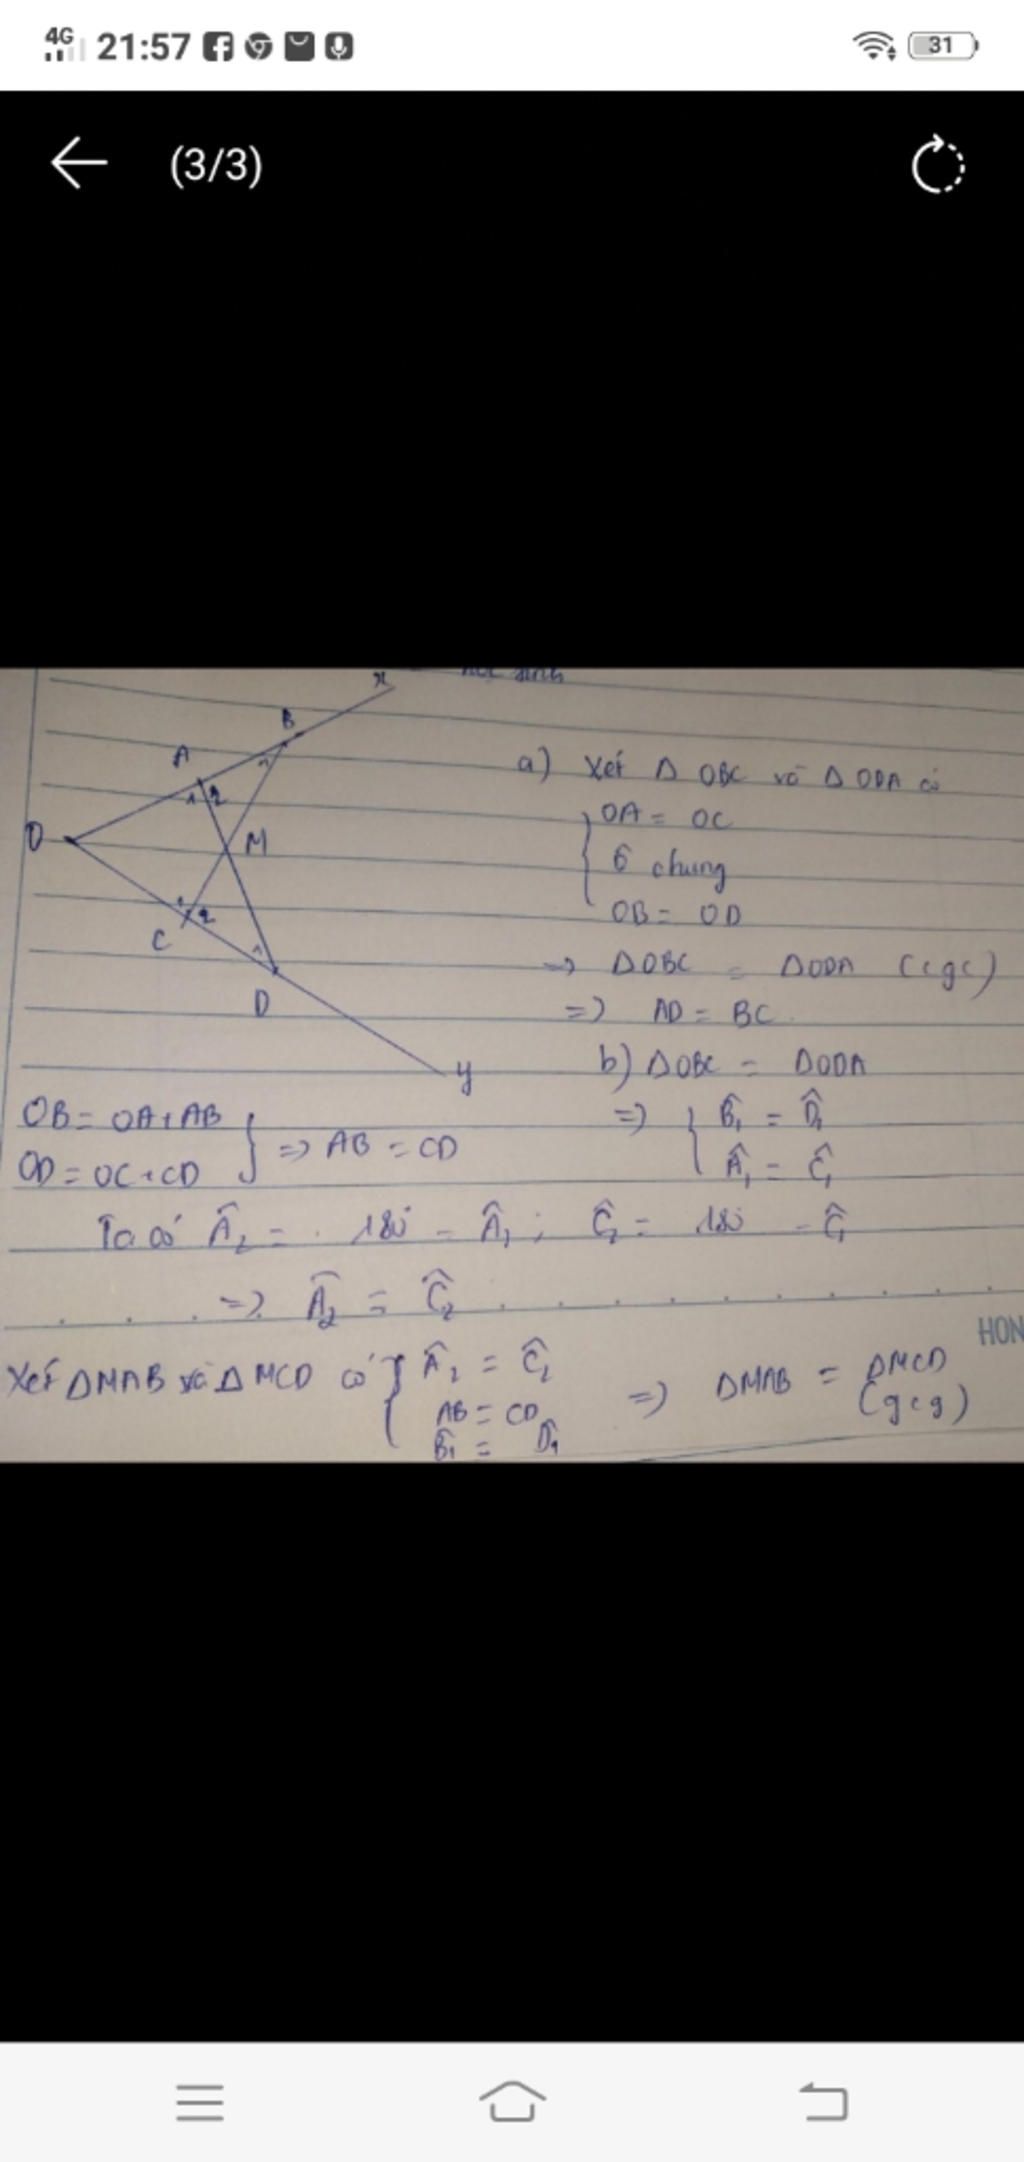 4G 21:57 31
(3/3)
học sinh
x
B
A
1 2
1
O
M
1 2
C
1
D
y
a) Xét Δ OBC và Δ ODA có
OA = OC
Ô chung
OB = OD
=> ΔOBC = ΔODA (cgc)
=> AD = BC.
b) ΔOBC = ΔODA
=> B̂₁ = D̂₁
Â₁ = Ĉ₁
OB = OA + AB
OD = OC + CD
=> AB = CD
Ta có Â₂ = 180° - Â₁ ; Ĉ₂ = 180° - Ĉ₁
=> Â₂ = Ĉ₂
HON
Xét ΔMAB và ΔMCD có Â₂ = Ĉ₂
AB = CD
B̂₁ = D̂₁
=> ΔMAB = ΔMCD
(gcg)